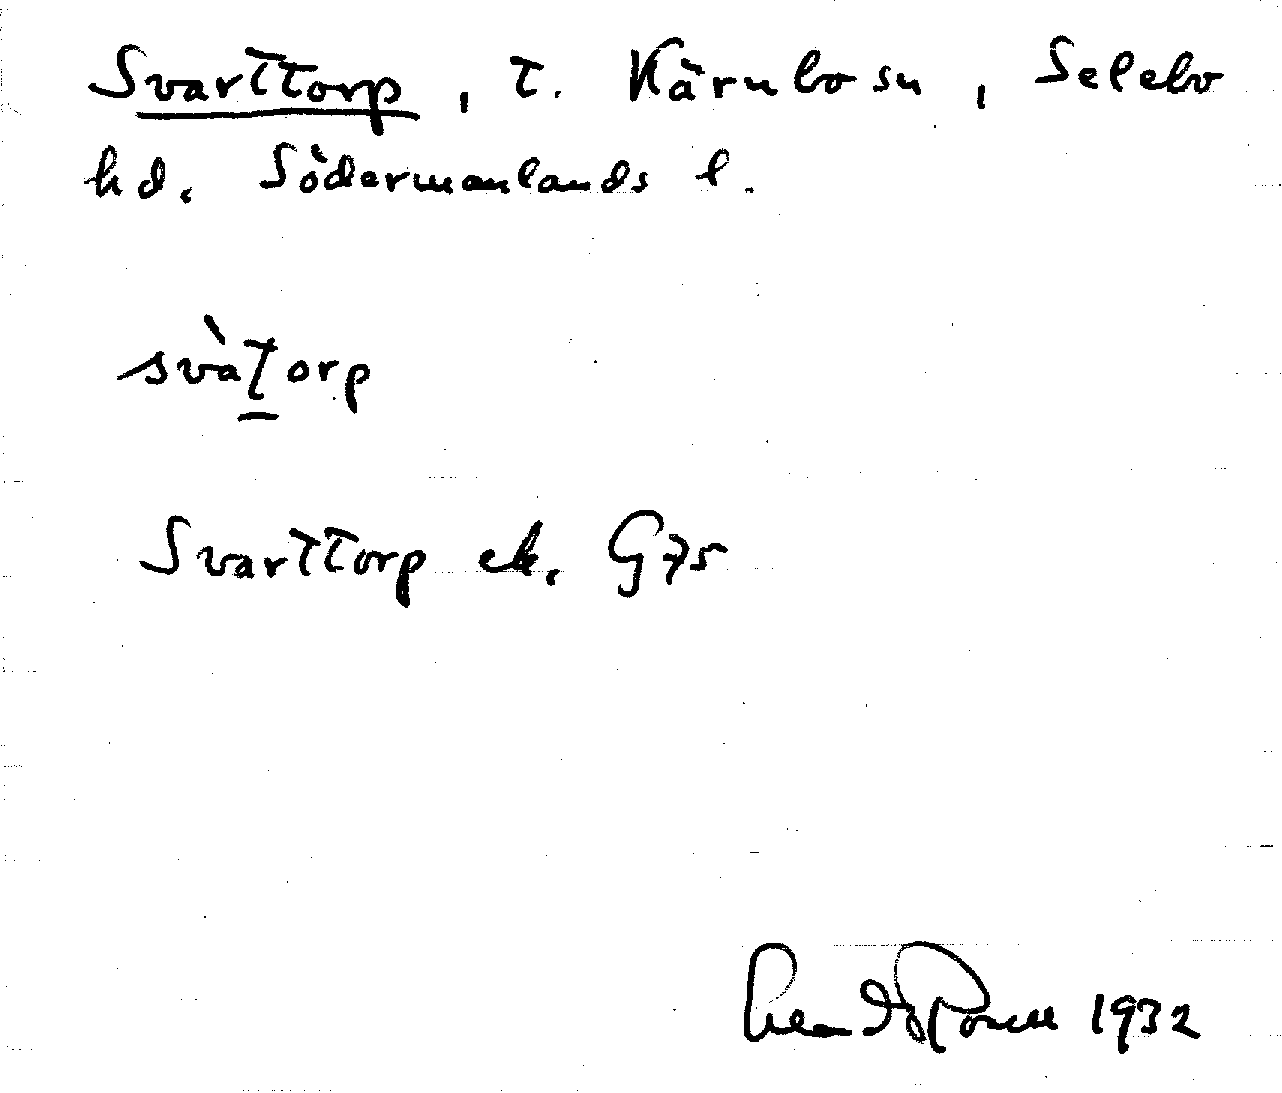 Svarttorp, t. Kärnbo sn, Selebo
hd. Södermanlands l.
svàtorp
Svarttorp ek. G75
1932